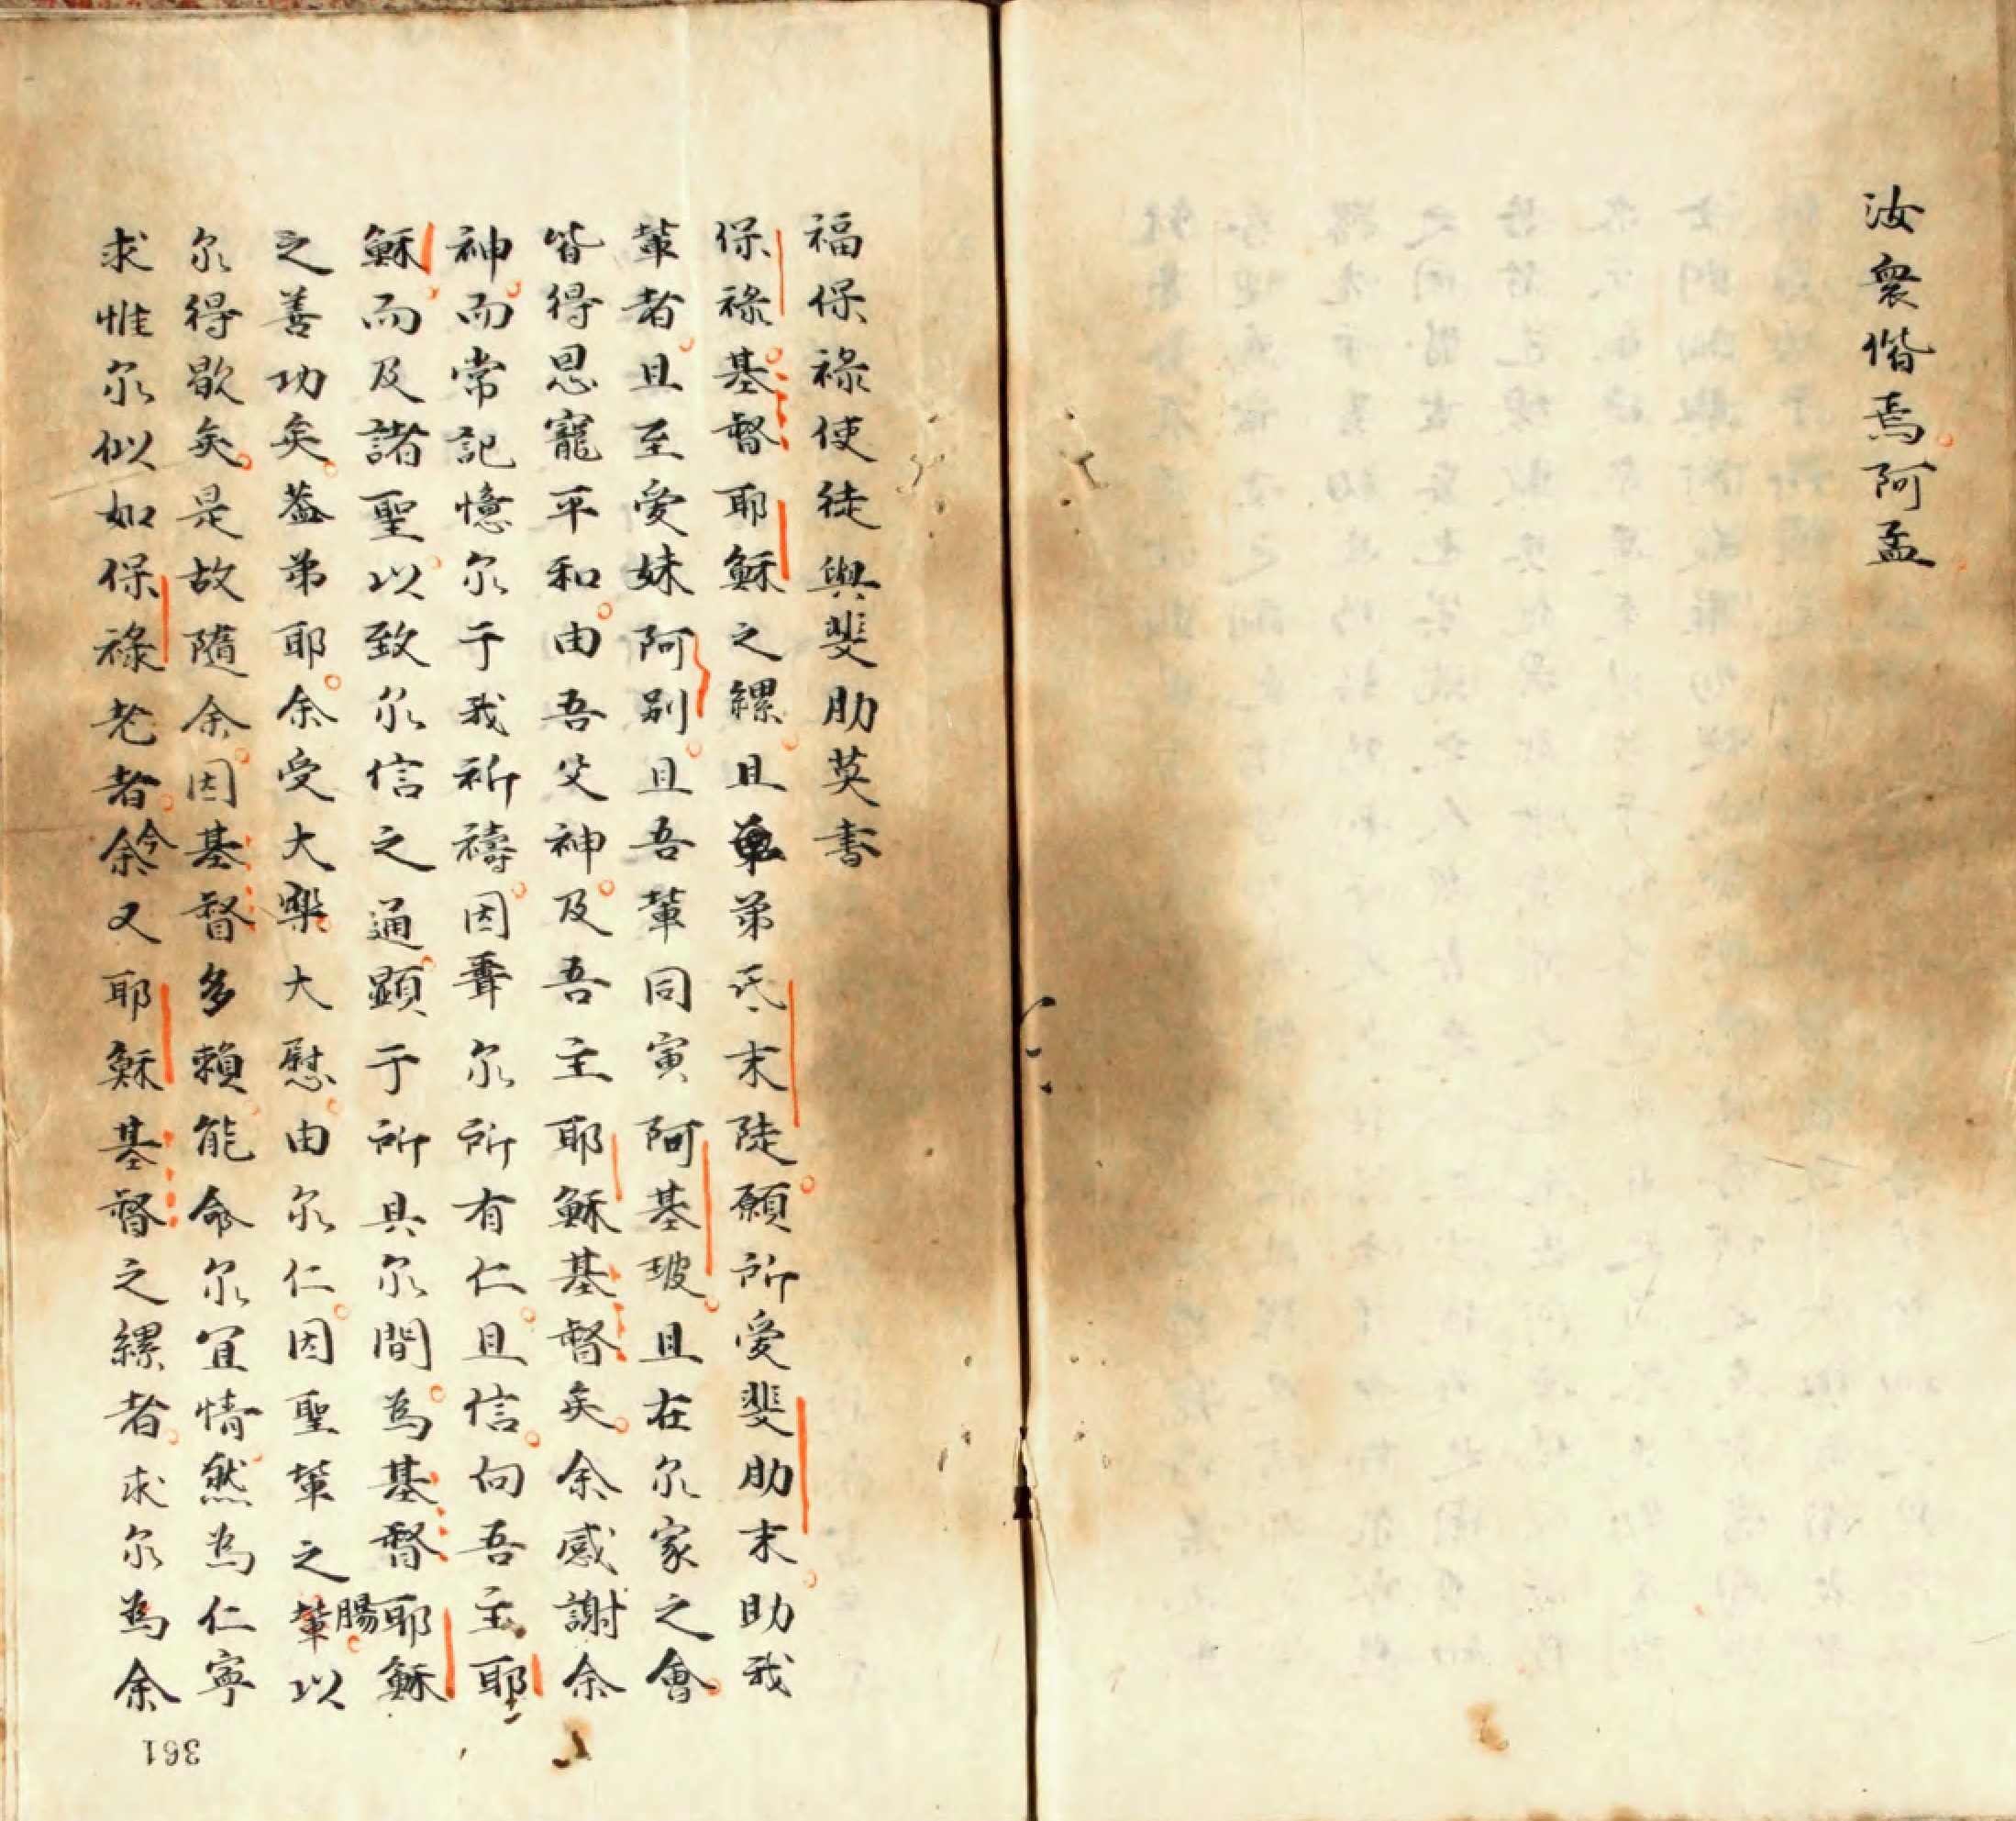 汝衆偕焉阿孟
福保祿使徒與斐肋英書
保祿基督耶穌之縲且弟氐末陡願所愛斐肋末助我
輩者且至愛妹阿別且吾輩同寅阿基玻且在尔家之會
皆得恩寵平和由吾父神及吾主耶穌基督矣余感謝余
神而常記憶尔于我祈禱因聞尔所有仁且信向吾主耶
穌而及諸聖以致尔信之通顯于所具尔間為基督耶穌
之善功矣葢弟耶余受大樂大慰由尔仁因聖輩之腸以
尔得歇矣是故隨余因基督多賴能命尔宜情然為仁寧
求惟尔似如保祿老者今余又耶穌基督之縲者求尔為余
361